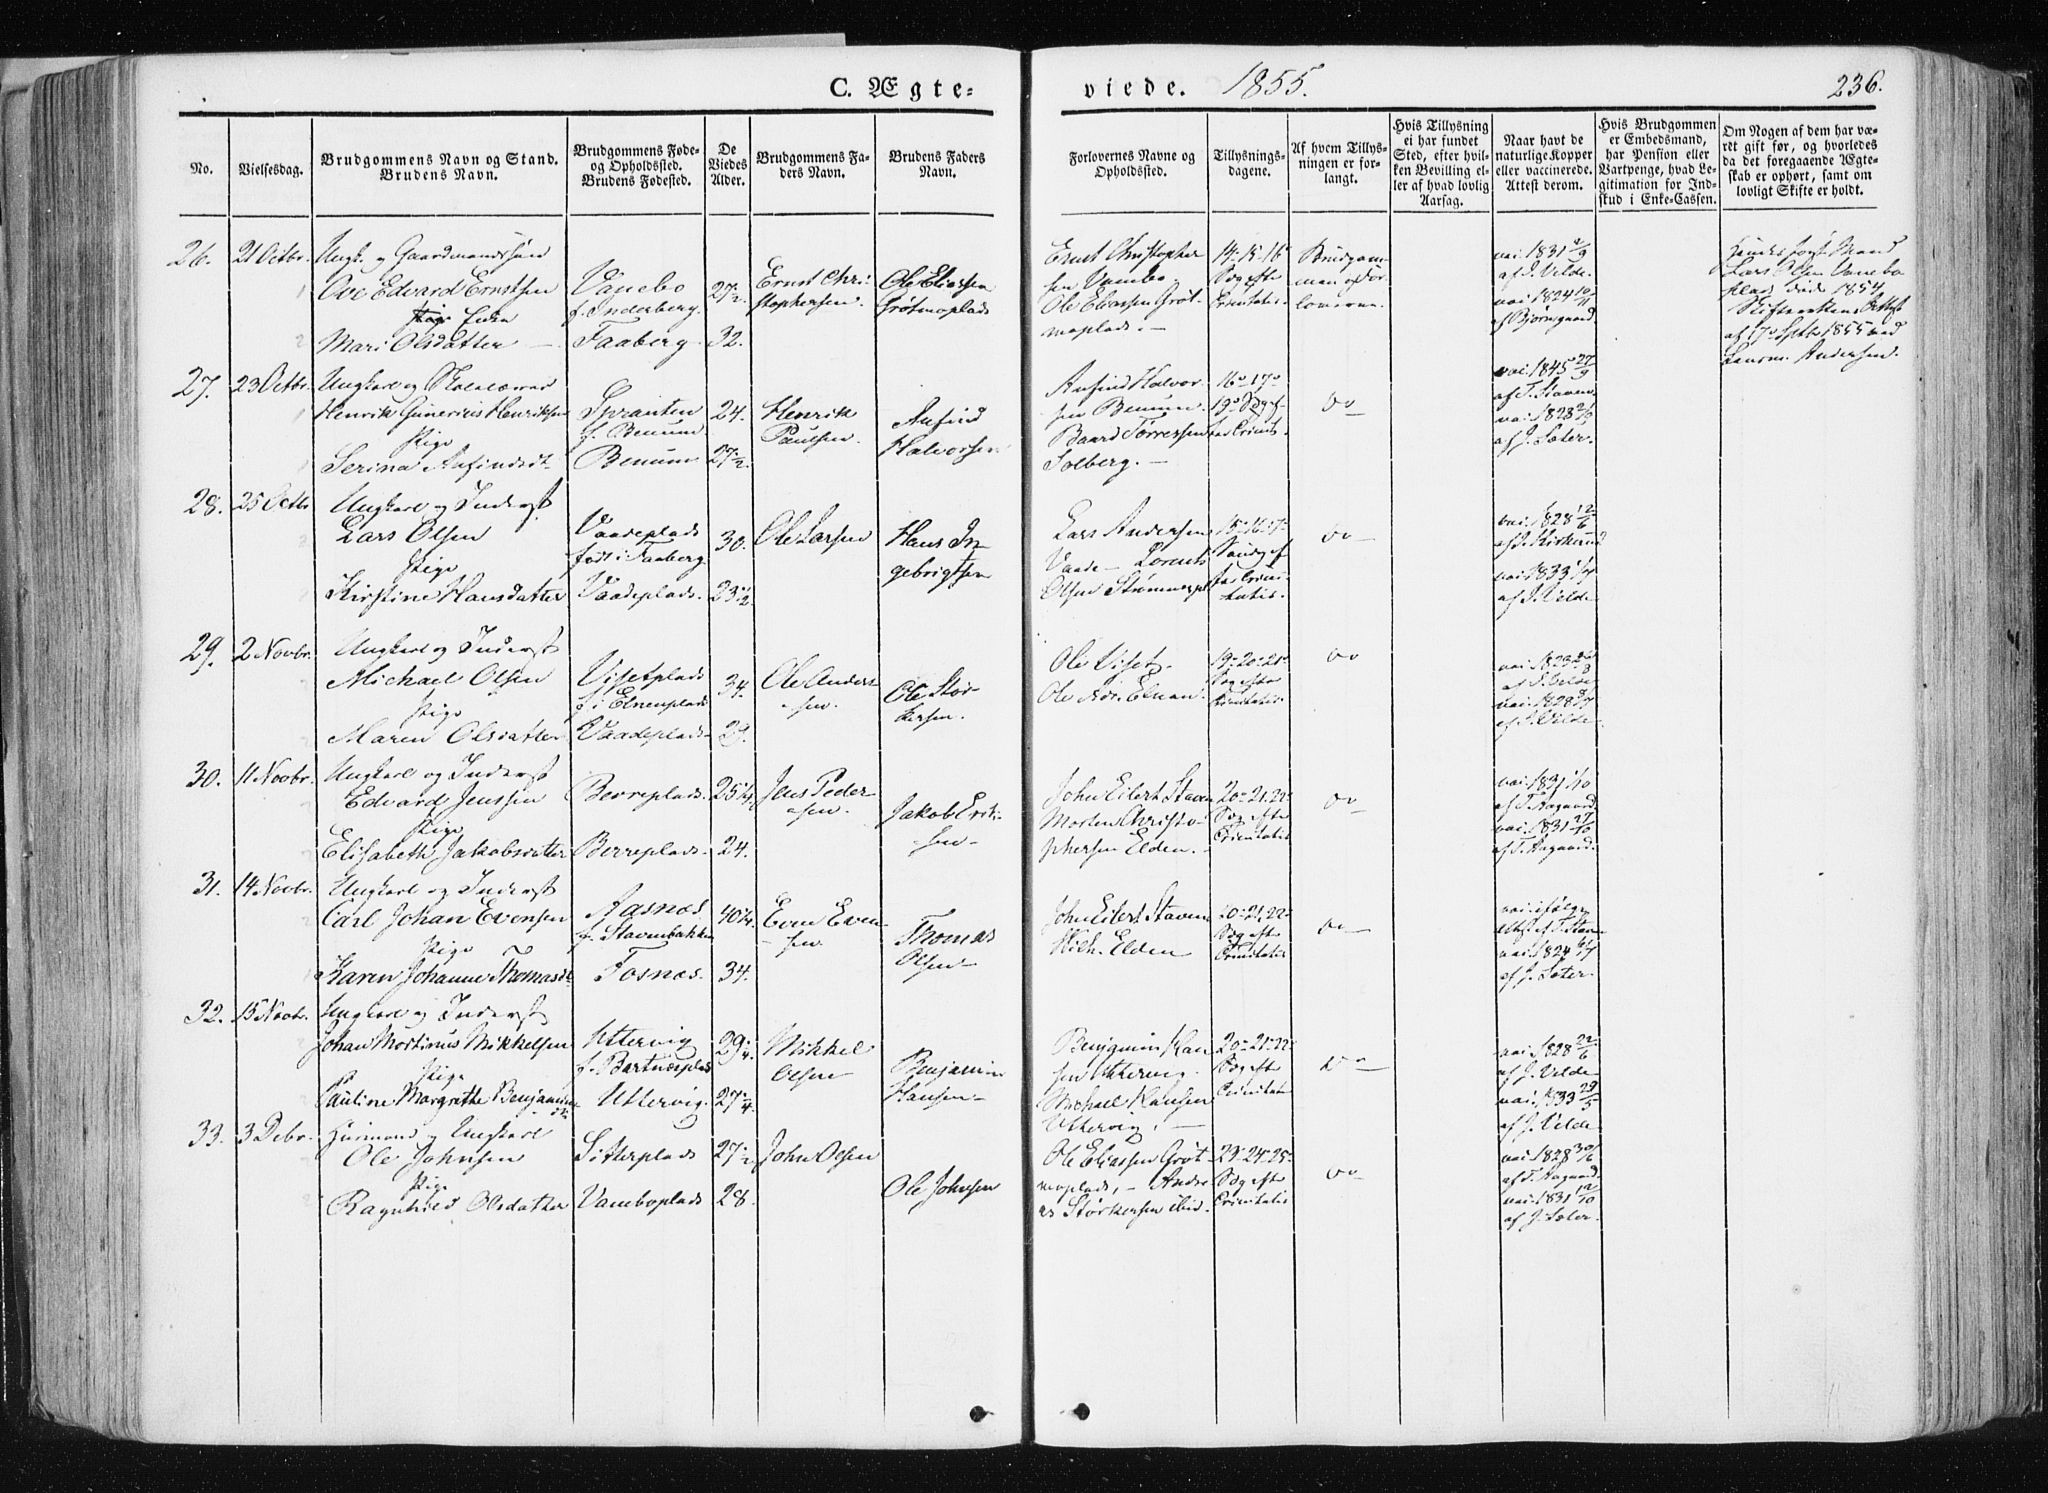 C. Ægte=
viede. 1855.
236.
No.
Vielsesdag.
Brudgommens Navn og Stand.
Brudens Navn.
Brudgommens Føde-
og Opholdssted.
Brudens Fødested.
De
Viedes
Alder.
Brudgommens Fa-
ders Navn.
Brudens Faders
Navn.
Forlovernes Navne og
Opholdssted.
Tillysnings-
dagene.
Af hvem Tillys-
ningen er for-
langt.
Hvis Tillysning
ei har fundet
Sted, efter hvil-
ken Bevilling el-
ler af hvad lovlig
Aarsag.
Naar havt de
naturlige Kopper
eller vaccinerede.
Attest derom.
Hvis Brudgommen
er Embedsmand,
har Pension eller
Vartpenge, hvad Le-
gitimation for Ind-
skud i Enke-Cassen.
Om Nogen af dem har væ-
ret gift før, og hvorledes
da det foregaaende Ægte-
skab er ophørt, samt om
lovligt Skifte er holdt.
26. 21 Octbr. Ungk. og Gaardmandssøn
Ove Edvard Ernstsen
Enke
Mari Olsdatter
Vanebo
f. Inderberg.
Faaberg.
27½
32.
Ernst Chri-
stophersen.
Ole Eliassen
Grøtmoplads
Ernst Christopher
sen Vambo
Ole Eliassen Grøt-
moplads.
14-15-16
Søg efter
Trinitatis.
Brudgom-
men og For-
loverne.
vac. 1831 2/9
af J. Velde.
vac. 1824 10/11
af Bjørngaard
Lars Olsen
død 1854
af 17 Septbr 1855 med
Andersen.
27. 23 Octbr. Ungkarl og Skolelærer
Henrik Gunerius Henriksen
Pige
Serina Anfindsdt.
f. Benum
Benum
24.
27½
Henrik
Paulsen.
Anfind
Halvorsen
Anfind Halvor-
sen Benum.
Baard Torressen
Solberg.
16-17-
19 Søg ef-
ter Trinit.
Do
vac. 1845 27/9
af T. Staven
vac. 1828
af J. Sæter.
28. 25 Octbr Ungkarl og Inderst
Lars Olsen
Pige
Kirstine Hansdatter
Vaadeplads
født i Faaberg
Vaadeplads.
30.
23½
Ole Larsen
Hans In-
gebrigtsen
Lars Andersen
Vaade - Lorents
Olsen Strømmespl
15-16-17-
Søndg ef
ter Trini-
tatis.
Do
vac. 1828 12/6
vac. 1833
af J. Velde
29. 2 Novbr. Ungkarl og Inderst
Michael Olsen
Pige
Maren Olsdatter
Visetplads
f. i Elnenplads
Vaadeplads
34.
29.
Ole Anders-
sen.
Ole Stor-
kersen.
Ole Viset.
19-20-21-
Søg efter
Trinitatis.
Do
vac. 1823
af J. Velde
vac. 1828
af J. Velde.
30. 11 Novbr. Ungkarl og Inderst
Edvard Jenssen
Pige
Elisabeth Jakobsdatter
Berreplads.
Berreplads.
25¼
24.
Jens Peder-
sen.
Jakob Erik-
sen
John Eilert Staven
Morten Christo-
phersen Elden.
20-21-22-
Søg efter
Trinitatis
Do
vac. 1831
af T. Aagaard
vac. 1831 27/10
af T. Aagaard.
31. 14 Novbr. Ungkarl og Inderst
Carl Johan Evensen
Pige
Karen Johanne Thomasdt
Aasnæs
f. Stavenbakken
Fosnæs.
40¼
34.
Even Even-
sen
Thomas
Olsen
John Eilert Staven
Wilh. Elden
20-21-22-
Søg efter
Trinitatis
Do
vac. ifølge
attest af T. Stav-
vac. 1824
af J. Sæter.
32. 15 Novbr. Ungkarl og Inderst
Johan Mortinus Mikkelsen
Pige
Pauline Margrethe Benjamins
dt.
Uttervig
f. Bartnesplads
Uttervig.
29¼
27¾
Mikkel
Olsen
Benjamin
Hansen
Benjamin Han
sen Uttervig.
Michael Hansen
Uttervig.
20-21-22-
Søg efter
Trinitatis
Do
vac. 1828 22/6
af J. Velde
vac. 1833 29/5
af J. Velde.
33. 3 Debr. Huusmand og Ungkarl
Ole Johnsen
Pige
Ragnhild Olsdatter
Sætterplads
Vamboplads
27½
28.
John Olsen
Ole Johnsen
Ole Eliassen Grøt-
moplads, - Andre
as Størkersen ibid.
23-24-25-
Søg efter
Trinitatis
Do
vac. 1828 30/6
af T. Aagaard
vac. 1831 12/10
af J. Sæter.